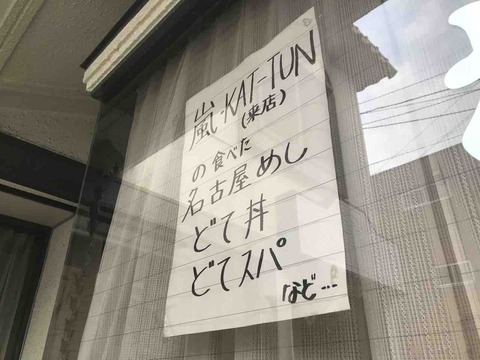 嵐・KAT-TUN
(来店)
の食べた
名古屋めし
どて丼
どてスパ
など…